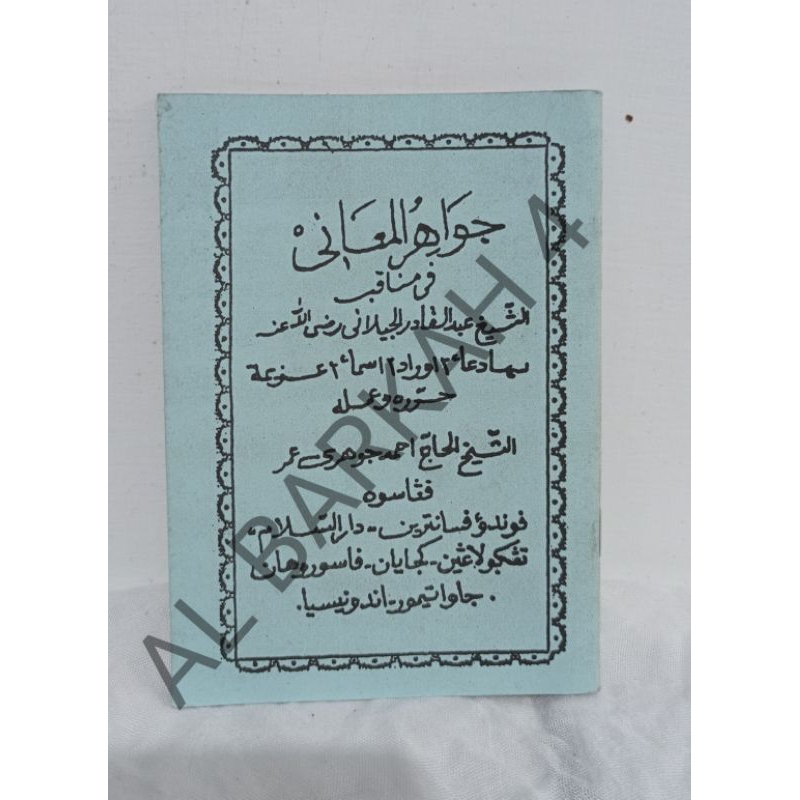 جَوَاهِرُ المَعَانِى
فى مناقب
الشّيخ عبد القادر الجيلانى رضى اللّٰه عنه
بهادعاء٢ اوراد٢ اسماء٢ عزيمة
حرّره وعمله
الشّيخ الحاجّ احمد جوهرى عمر
فڠاسوه
فوندؤ فسانترين - دار السّلام -
تڠكولاڠين - كجايان - فاسوروهان
جاوا تيمور - اندونيسيا.
AL BARKAH 4